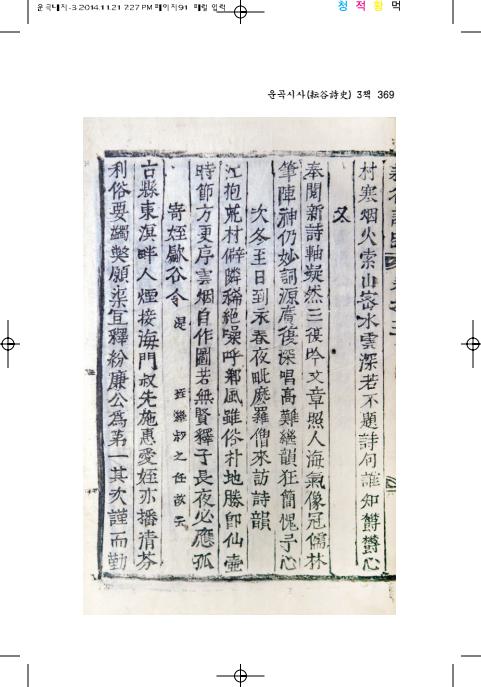 운곡대지-3 2014.11.21 7:27 PM 페이지91 매킬 입력
청 적 황 먹
운곡시사(耘谷詩史) 3책 369
村寒烟火索山密水雲深若不題詩何誰知欝欝心
又
奉聞新詩軸凝然三復吟文章照人海氣像冠儒林
筆陣神仍妙詞源廣復深唱高難繼韻狂簡愧予心
次冬至日到永春夜毗麽羅僧來訪詩韻
江抱荒村僻隣稀絶噪呼鄕風雖俗朴地勝卽仙壺
時節方更序雲烟自作圖若無賢釋子長夜必應孤
寄姪歙谷令 湜 姪繼叔之任故云
古縣東溟畔人煙接海門叔先施惠愛姪亦播淸芬
利俗要蠲弊願渠宜釋紛廉公爲第一其次謹而勤